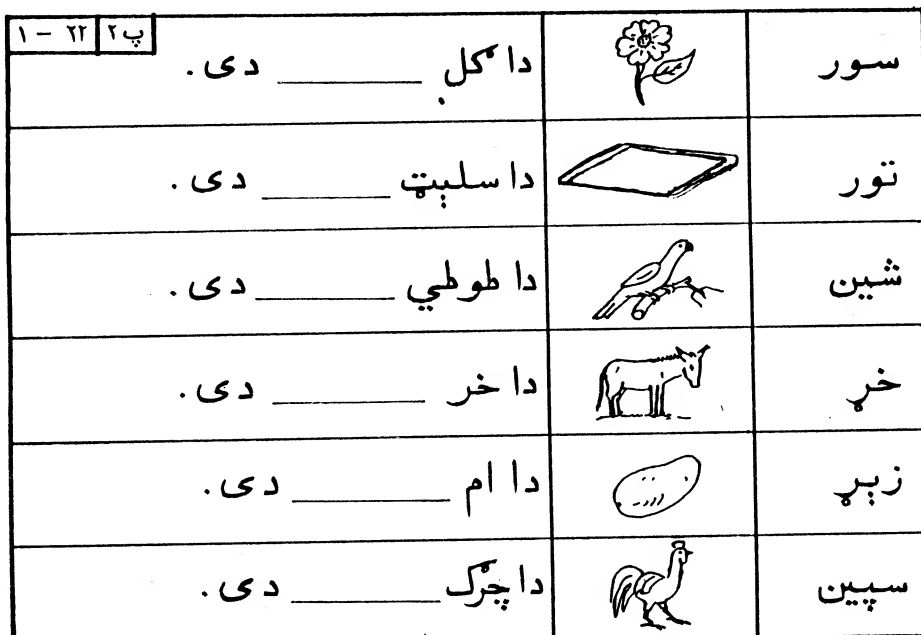 پ۲ ۲۲ – ۱
سور دا ګل ______ دی.
تور دا سلېټ ______ دی.
شین دا طوطي ______ دی.
خړ دا خر ______ دی.
زېړ دا ام ______ دی.
سپین دا چرګ ______ دی.